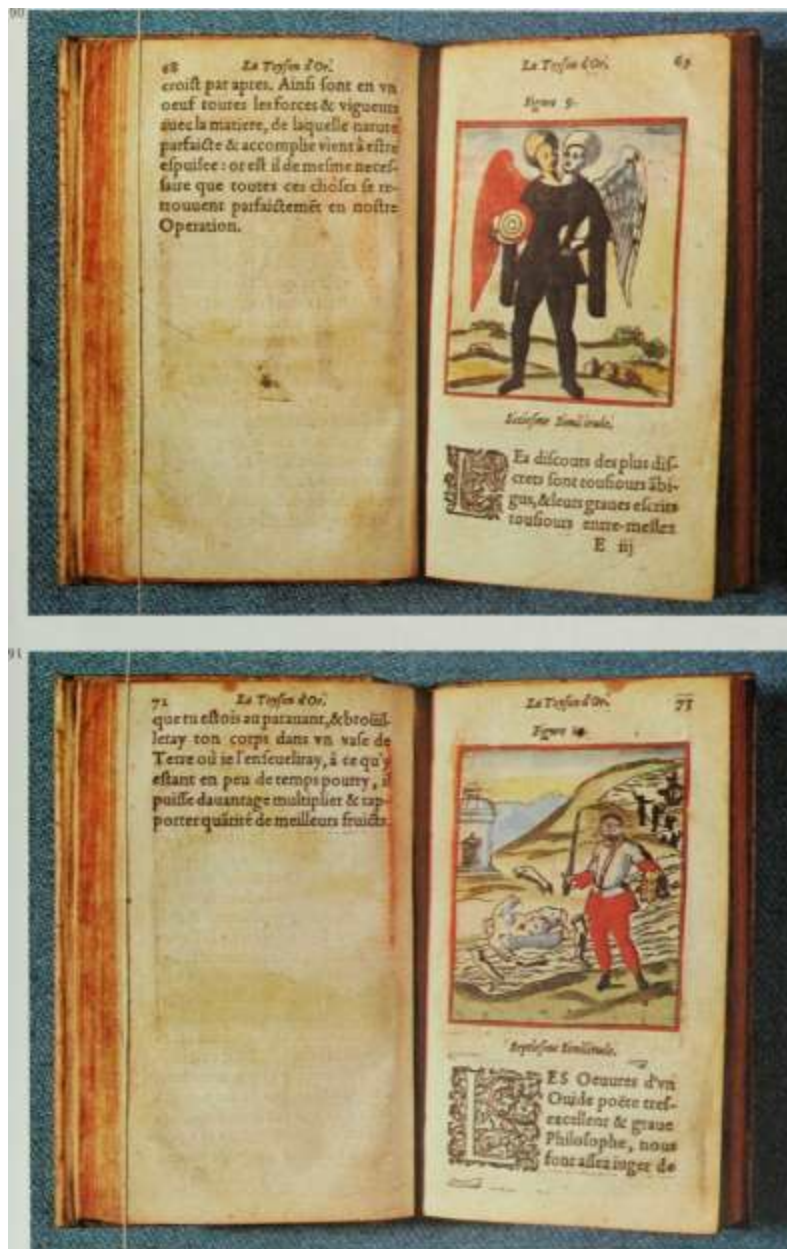 90
68 La Toyson d'Or.
croist par apres. Ainsi sont en vn
oeuf toutes les forces & vigueurs
auec la matiere, de laquelle nature
parfaicte & accomplie vient à estre
espuisee : or est il de mesme neces-
saire que toutes ces choses se re-
trouuent parfaictemēt en nostre
Operation.
La Toyson d'Or. 69
Figure 9.
Sixiesme Similitude.
LEs discours des plus dis-
crets sont tousiours ābi-
gus, & leurs graues escrits
tousiours entre-meslez
E iij
91
72 La Toyson d'Or.
que tu estois au parauant, & broüil-
leray ton corps dans vn vase de
Terre où ie l'enseueliray, à ce qu'y
estant en peu de temps pourry, il
puisse dauantage multiplier & rap-
porter quātité de meilleurs fruicts.
La Toyson d'Or. 73
Figure 10.
Septiesme Similitude.
LES Oeuures d'vn
Ouide poëte tres-
excellent & graue
Philosophe, nous
font assez iuger de